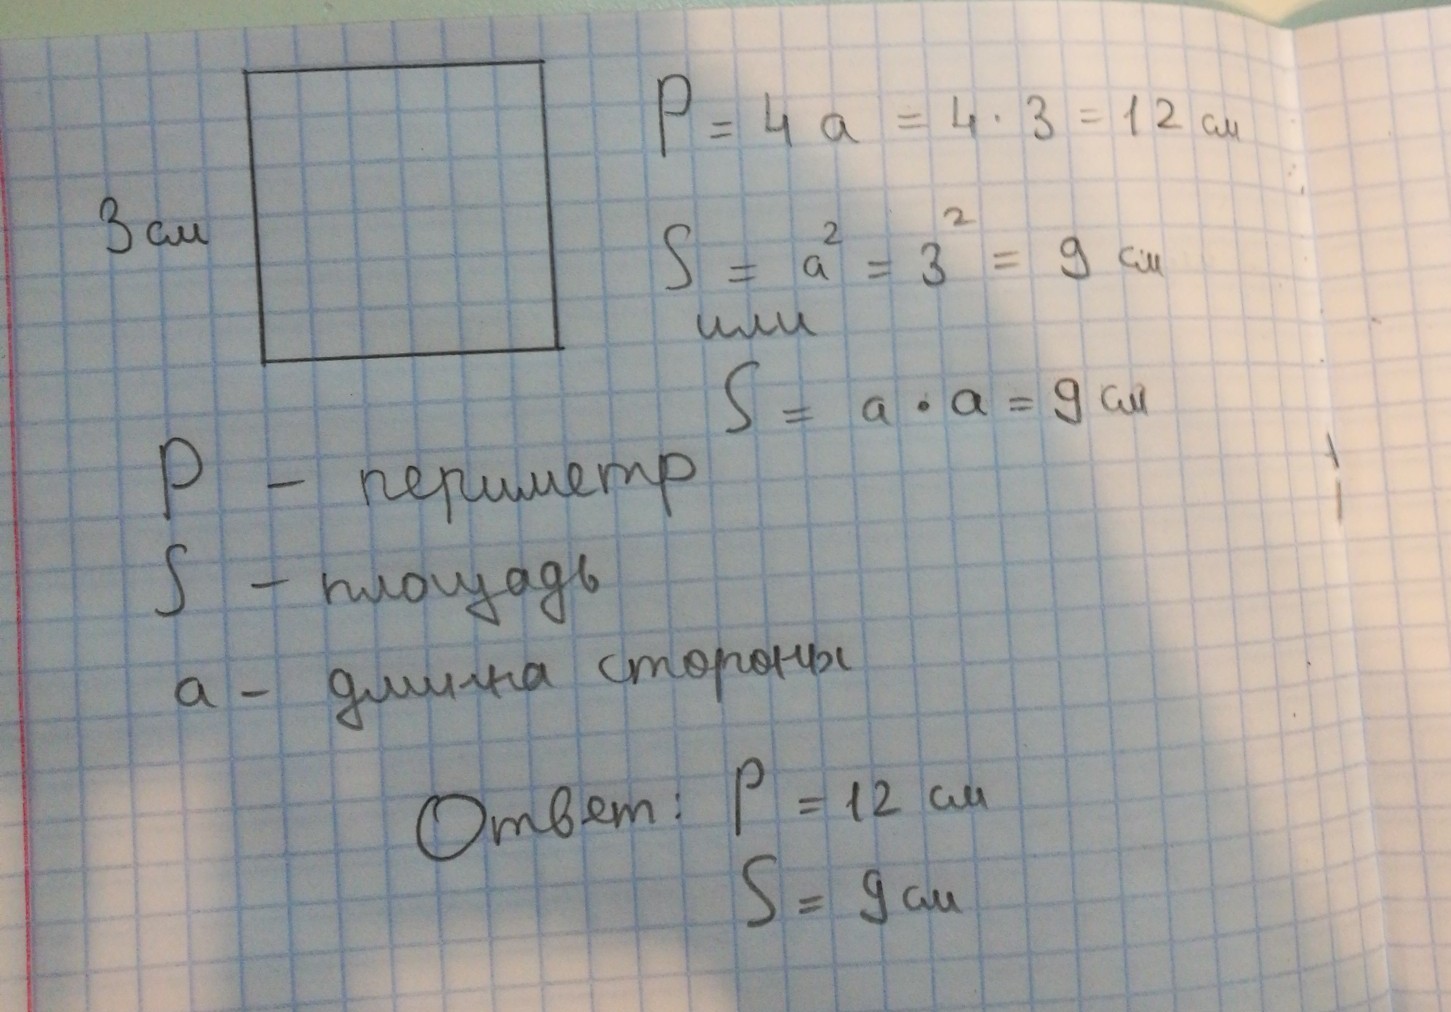 P = 4 a = 4 · 3 = 12 см
3 см
S = a² = 3² = 9 см
или
S = a · a = 9 см
P – периметр
S – площадь
a – длинна стороны
Ответ: P = 12 см
S = 9 см